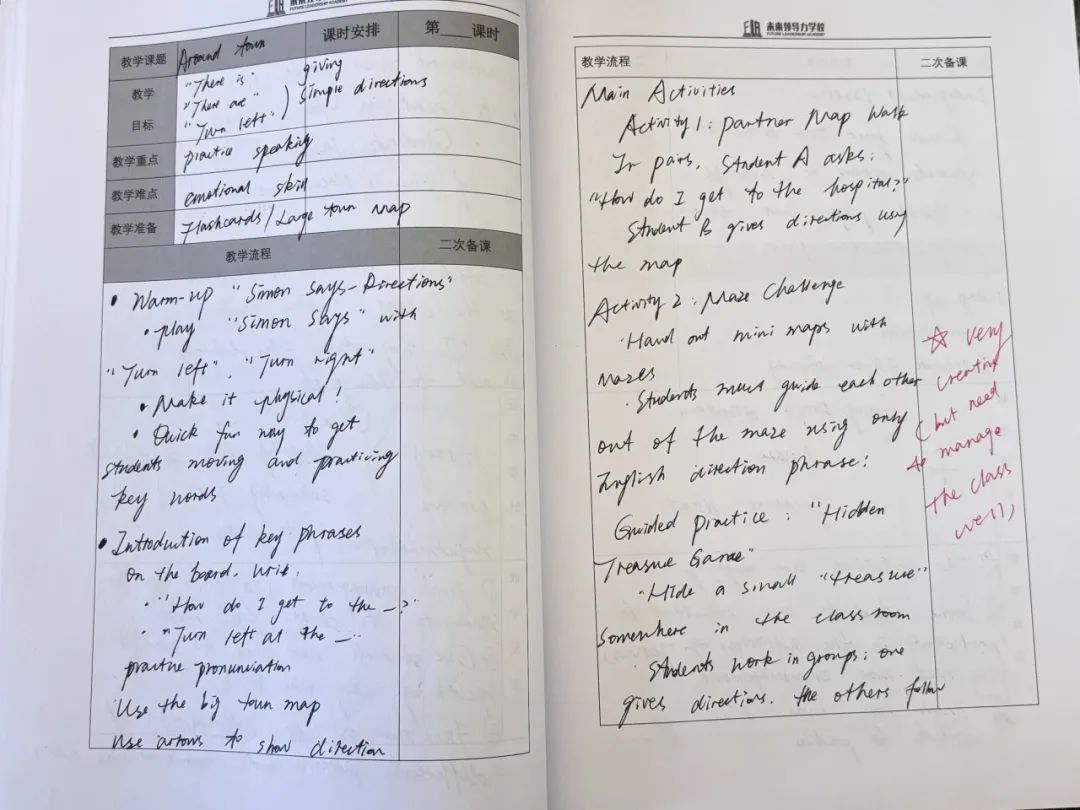 未来领导力学校
FUTURE LEADERSHIP ACADEMY
教学课题 Around town 课时安排 第____课时
教学目标 "There is" giving
"There are" ) simple directions
"Turn left"
教学重点 practice speaking
教学难点 emotional skill
教学准备 Flashcards / Large town map
教学流程 二次备课
• Warm-up "Simon Says-Directions"
• play "Simon Says" with
"Turn left". "Turn right"
• Make it physical!
• Quick fun way to get
students moving and practicing
key words
• Introduction of key phrases
On the board. write.
• "How do I get to the _?"
• "Turn left at the _.
practice pronunciation
Use the big town map
Use arrows to show direction
FLA 未来领导力学校
FUTURE LEADERSHIP ACADEMY
教学流程 二次备课
Main Activities
Activity 1: Partner Map Walk
In pairs, Student A asks:
"How do I get to the hospital?"
Student B gives directions using
the map
Activity 2: Maze Challenge
· Hand out mini maps with
mazes
· Students must guide each other
out of the maze using only
English direction phrase!
Guided practice: "Hidden
Treasure Game"
· Hide a small "treasure"
somewhere in the classroom
· Students work in groups; one
gives directions. the others follow
☆ very
creating
(but need
to manage
the class
well)